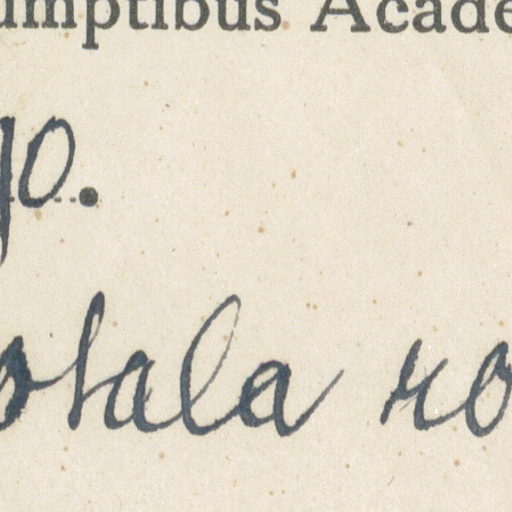 umptibus Acade
yo.
osala ro